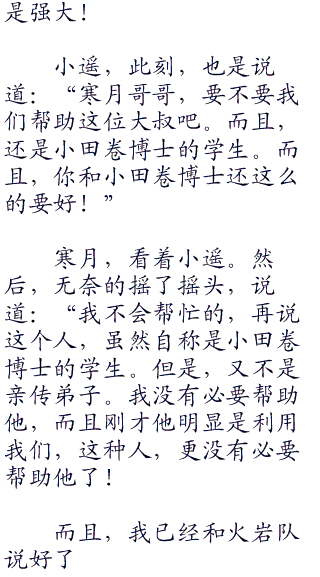 是强大！
小遥，此刻，也是说
道：“寒月哥哥，要不要我
们帮助这位大叔吧。而且，
还是小田卷博士的学生。而
且，你和小田卷博士还这么
的要好！”
寒月，看着小遥。然
后，无奈的摇了摇头，说
道：“我不会帮忙的，再说
这个人，虽然自称是小田卷
博士的学生。但是，又不是
亲传弟子。我没有必要帮助
他，而且刚才他明显是利用
我们，这种人，更没有必要
帮助他了！
而且，我已经和火岩队
说好了